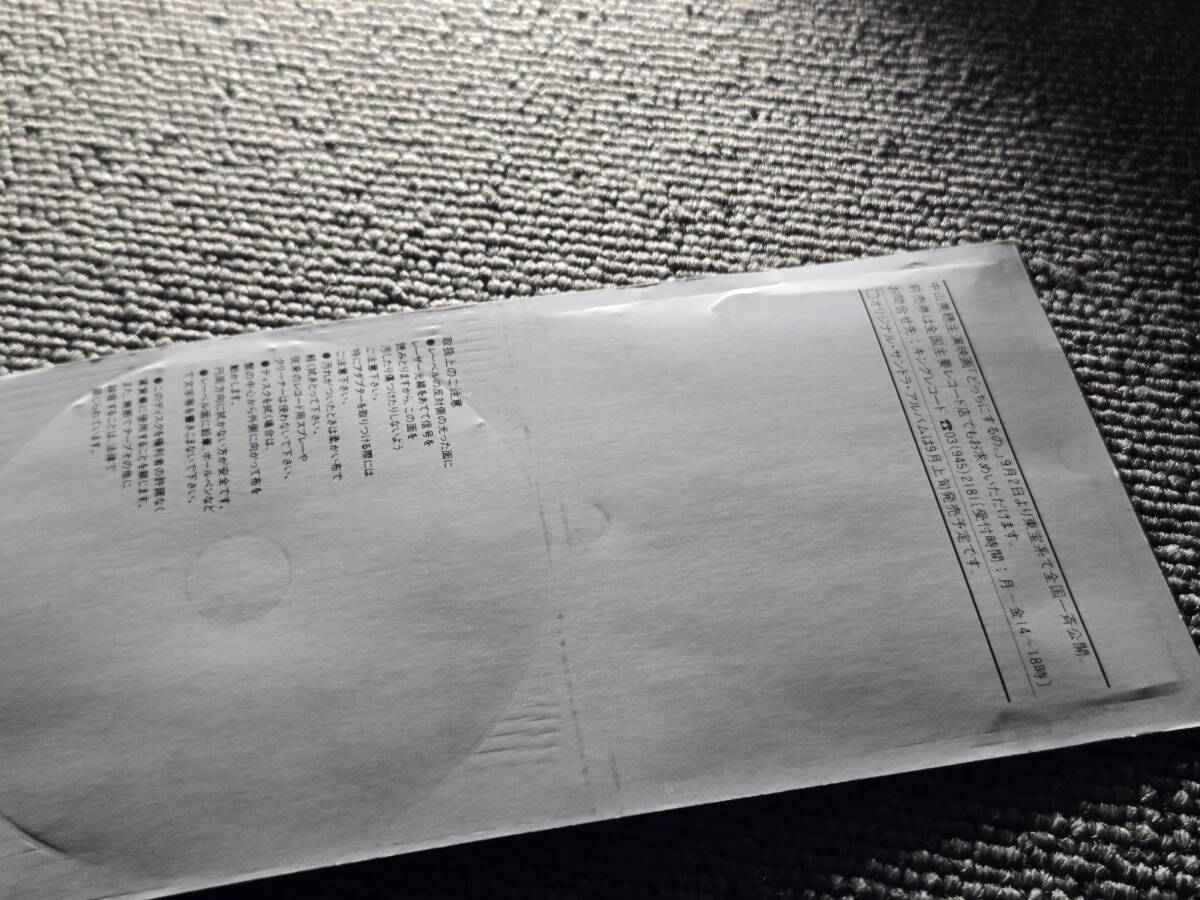 中山美穂主演映画「どっちにするの。」9月2日より東宝系で全国一斉公開。
前売券は全国主要レコード店でもお求めいただけます。
お問合せ先：キングレコード ☎03(945)2181〔受付時間；月－金14－18時〕
□オリジナル・サントラ・アルバムは9月上旬発売予定です。
取扱上のご注意
●レーベルの反対側の光った面に
レーザー光線をあてて信号を
読みとりますから、この面を
汚したり傷つけたりしないよう
ご注意下さい。
特にアダプターを取りつける際には
ご注意下さい。
●汚れがついたときは柔かい布で
軽く拭きとって下さい。
従来のレコード用スプレーや
クリーナーは使わないで下さい。
●ディスクを拭く場合は、
盤の中心から外側に向かって布を
動かします。
円周方向に拭かない方が安全です。
●レーベル面に鉛筆、ボールペンなど
で文字等を書きこまないで下さい。
●このディスクを権利者の許諾なく
賃貸業に使用することを禁じます。
また、無断でテープその他に
録音することは、法律で
禁じられています。